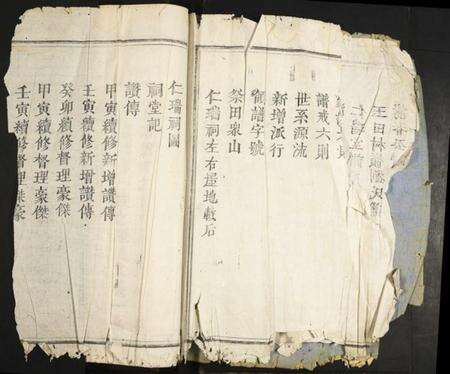 譜戒六則
世系源流
新增派行
領譜字號
祭田眾山
仁瑞祠左右虛地載后
仁瑞祠圖
祠堂記
讚傳
甲寅續修新增讚傳
壬寅續修新增讚傳
癸卯續修督理豪傑
甲寅續修督理豪傑
壬寅續修督理傑豪